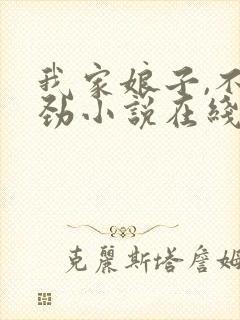 我家娘子,不
劲小說在綫
克麗斯塔詹姆